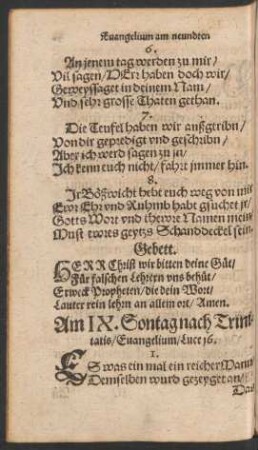 Euangelium am neundten
6.
An jenem tag werden zu mir/
Vil sagen/ HErr haben doch wir/
Geweyssaget in deinem Nam/
Vnd sehr grosse Thaten gethan.
7.
Die Teufel haben wir außgeribn/
Von dir gepredigt vnd geschribn/
Aber ich werd sagen zu jn/
Ich kenn euch nicht/ fahrt jmmer hin.
8.
Ir Bößwicht hebt euch weg von mir
Ewr Ehr vnd Ruhmb habt gsuchet jr/
Gotts Wort vnd thewre Namen mein/
Must ewrs geytzs Schanddeckel sein.
Gebett.
HERR Christ wir bitten deine Güt/
Für falschen Lehrern vns behüt/
Erweck Propheten/ die dein Wort/
Lauter rein lehrn an allem ort/ Amen.
Am IX. Sontag nach Trini-
tatis/ Euangelium/ Luce 16.
1.
ES was ein mal ein reicher Mann
Demselben wurd gezeyget an/